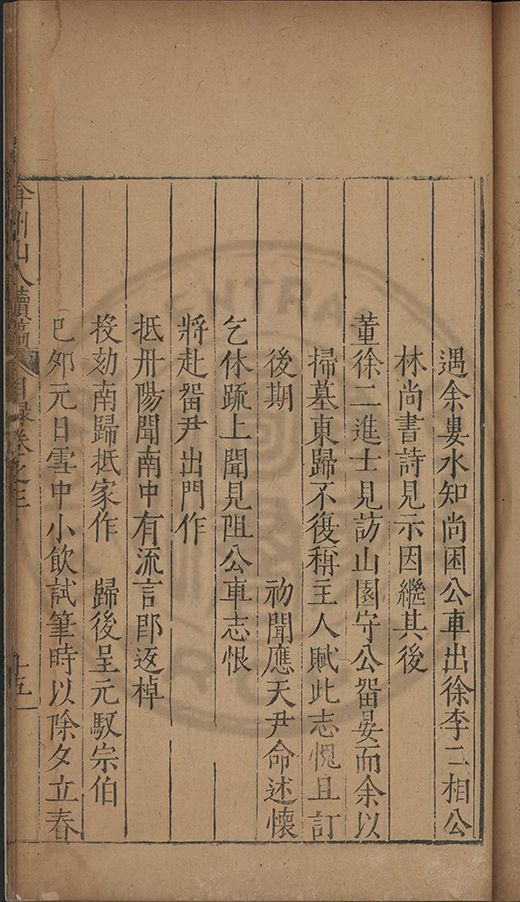 遇余婁水知尚困公車出徐李二相公
林尚書詩見示因繼其後
董徐二進士見訪山園守公畱晏而余以
掃墓東歸不復稱主人賦此志愧且訂
後期　初聞應天尹命述懷
乞休疏上聞見阻公車志恨
將赴畱尹出門作
抵丹陽聞南中有流言即返棹
投劾南歸抵家作　歸後呈元馭宗伯
已夘元日雪中小飲試筆時以除夕立春
弇州山人續稿 目録卷之三 十五